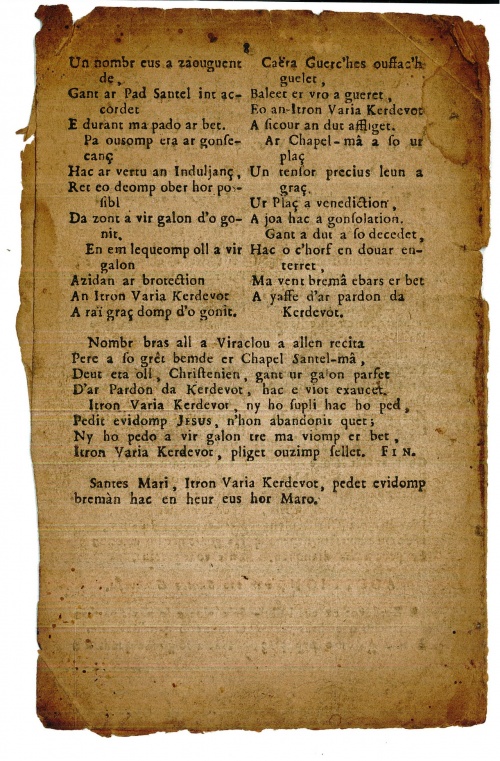 8
Un nombr eus a zaouguent
de,
Gant ar Pad Santel int ac-
cordet
E durant ma pado ar bet.
Pa ousomp era ar gonse-
canç
Hac ar vertu an Induljanç,
Ret eo deomp ober hor pos-
sibl
Da zont a vir galon d'o go-
nit.
En em lequeomp oll a vir
galon
Azidan ar brotection
An Itron Varia Kerdevot
A raï graç domp d'o gonit.
Caëra Guerc'hes ouffac'h
guelet,
Baleet er vro a gueret,
Eo an-Itron Varia Kerdevot
A sicour an dut affliget.
Ar Chapel-mâ a so ur
plaç
Un tensor precius leun a
graç.
Ur Plaç a venediction,
A joa hac a gonsolation.
Gant a dut a so decedet,
Hac o c'horf en douar en-
terret,
Ma vent bremâ ebars er bet
A yaffe d'ar pardon da
Kerdevot.
Nombr bras all a Viraclou a allen recita
Pere a so grêt bemde er Chapel Santel-mâ,
Deut eta oll, Christenien, gant ur galon parfet
D'ar Pardon da Kerdevot, hac e viot exaucet.
Itron Varia Kerdevot, ny ho supli hac ho ped,
Pedit evidomp JESUS, n'hon abandonit quet;
Ny ho pedo a vir galon tre ma viomp er bet,
Itron Varia Kerdevot, pliget ouzimp sellet. FIN.
Santes Mari, Itron Varia Kerdevot, pedet evidomp
bremàn hac en heur eus hor Maro.